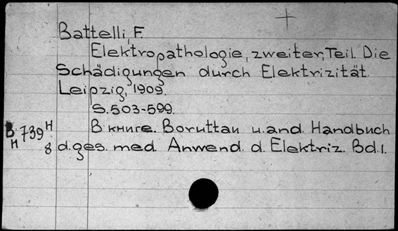 Battelli, F.
Elektropathologie, zweiter, Teil. Die
Schädigungen durch Elektrizität.
Leipzig, 1909.
S. 503-599.
В книге. Boruttau u. and. Handbuch
B 739 H
H 8
d. ges. med. Anwend. d. Elektriz. Bd. 1.